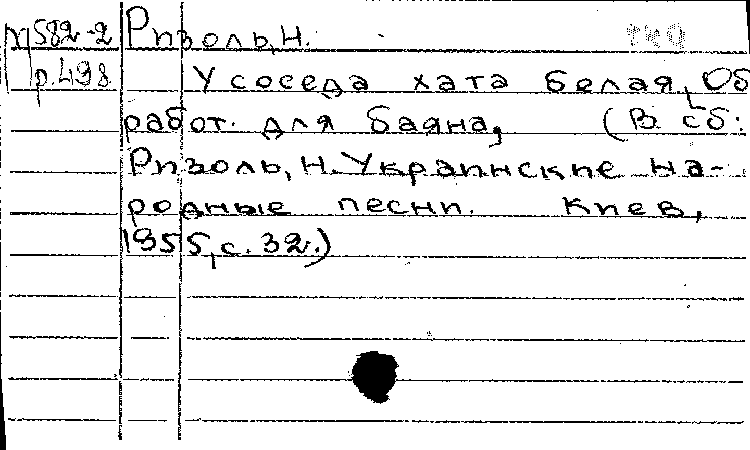 М582-2 Ризоль, Н.
р.498 У соседа хата белая, Об
работ. для баяна, (В сб:
Ризоль, Н. Украинские на-
родные песни. Киев,
1955, с. 32.)